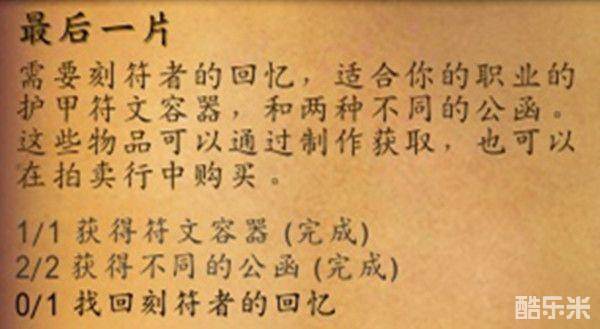 最后一片
需要刻符者的回忆，适合你的职业的
护甲符文容器，和两种不同的公函。
这些物品可以通过制作获取，也可以
在拍卖行中购买。
1/1 获得符文容器 (完成)
2/2 获得不同的公函 (完成)
0/1 找回刻符者的回忆
酷乐米